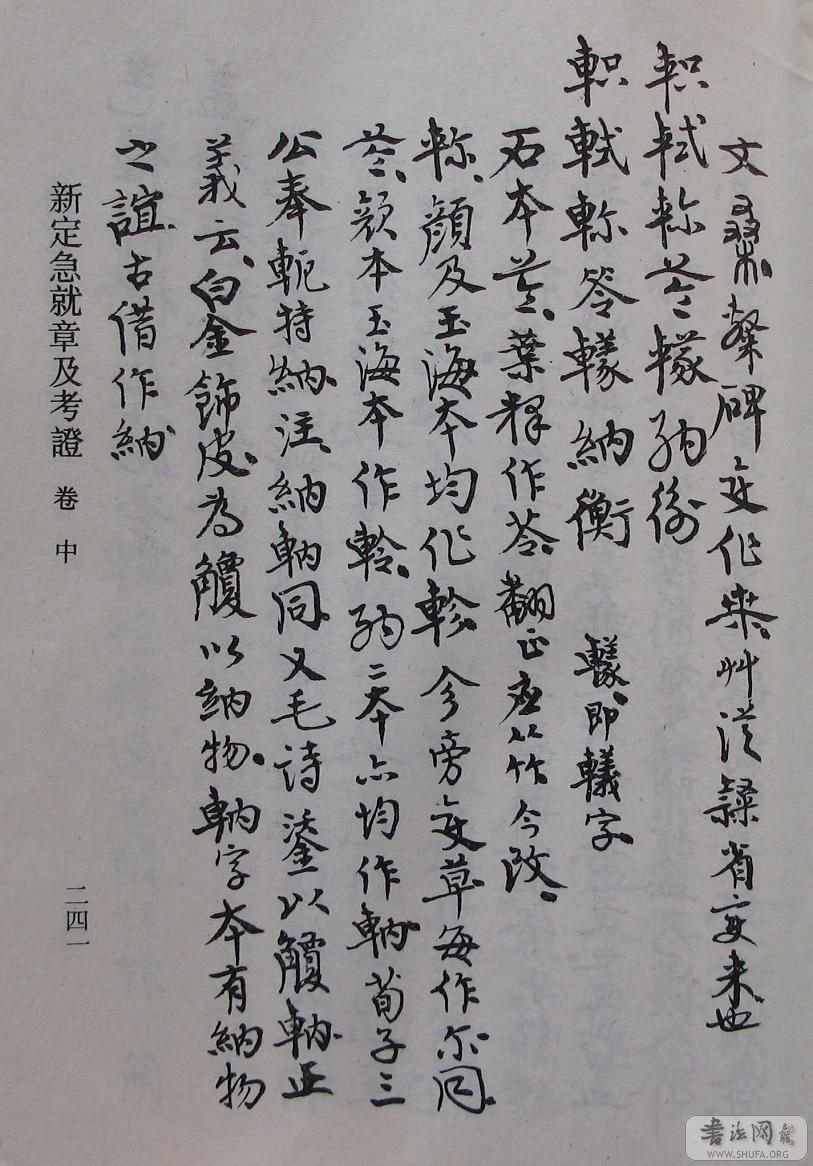 文桑粲碑变作桒艸從隸省变来也
軹軾軫苓轙納衡
軹軾軫笭轙納衡 轙即轙字
石本苓葉釋作苓翻正应从竹今改
軫顔及玉海本均作軫㐱旁变草每作尔同
苓顔本玉海本作軨納二本亦均作軜荀子三
公奉軛特納注納軜同又毛詩鋈以觼軜正
義云白金飾皮為觼以納物軜字本有納物
之誼古借作納
新定急就章及考證 卷 中
二四一
書法网
WWW.SHUFA.ORG